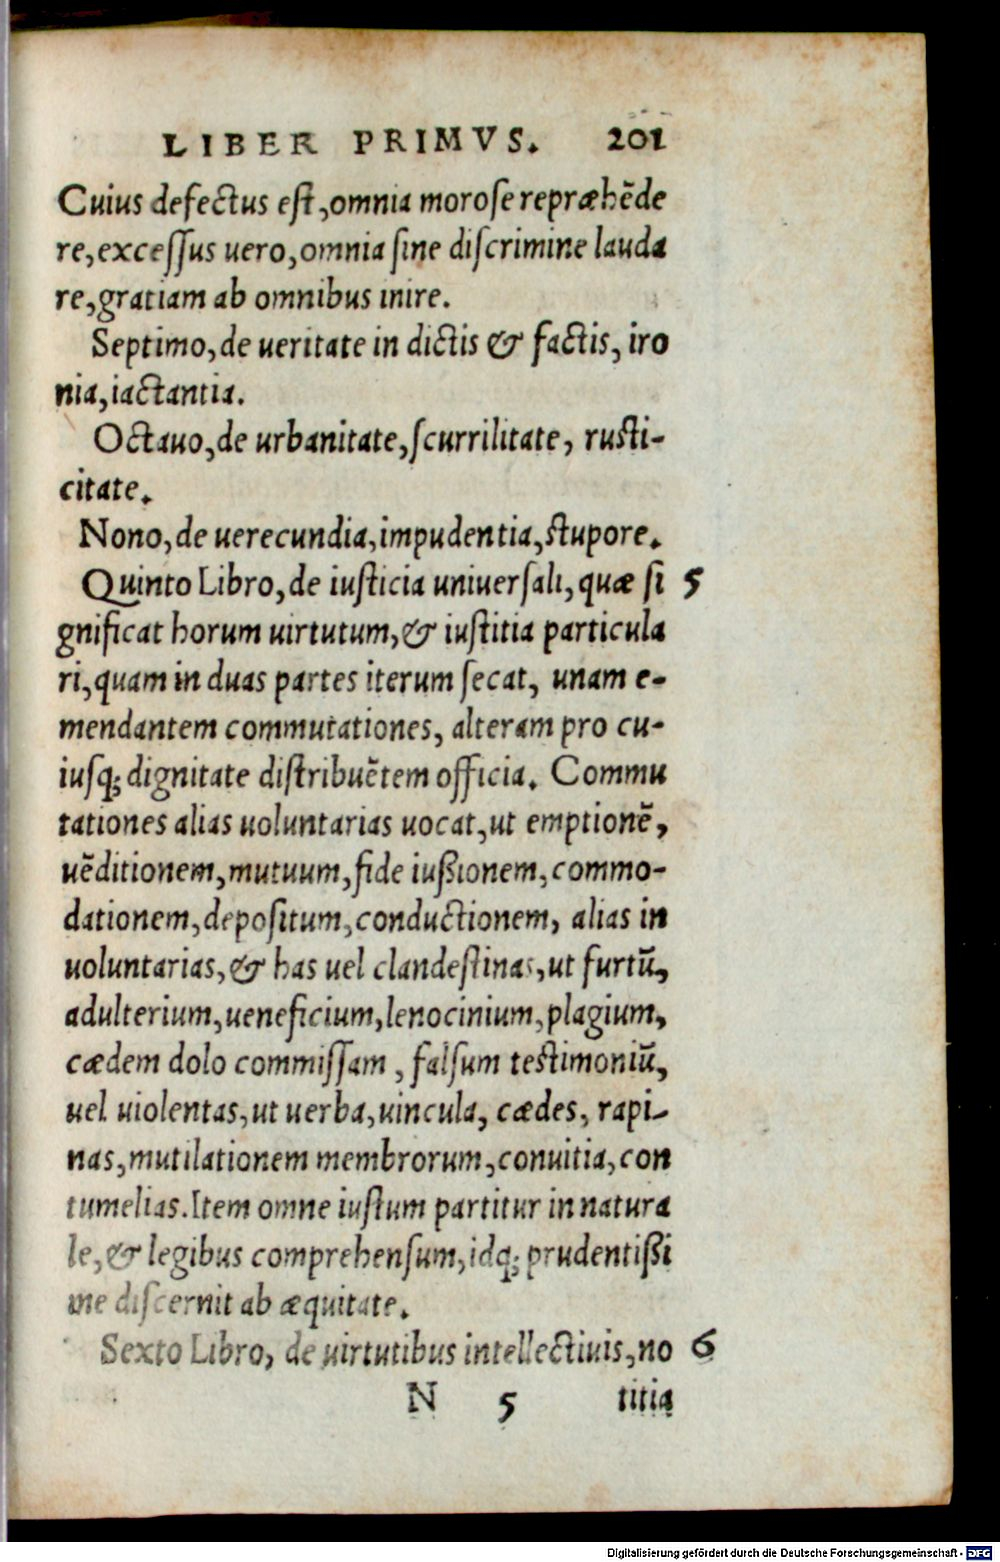 LIBER PRIMVS. 201
Cuius defectus est, omnia morose repræhẽde
re, excessus uero, omnia sine discrimine lauda
re, gratiam ab omnibus inire.
Septimo, de ueritate in dictis & factis, iro
nia, iactantia.
Octauo, de urbanitate, scurrilitate, rusti-
citate.
Nono, de uerecundia, impudentia, stupore.
Quinto Libro, de iusticia uniuersali, quæ si 5
gnificat horum uirtutum, & iustitia particula
ri, quam in duas partes iterum secat, unam e-
mendantem commutationes, alteram pro cu-
iusq; dignitate distribuẽtem officia. Commu
tationes alias uoluntarias uocat, ut emptionẽ,
uẽditionem, mutuum, fide iußionem, commo-
dationem, depositum, conductionem, alias in
uoluntarias, & has uel clandestinas, ut furtũ,
adulterium, ueneficium, lenocinium, plagium,
cædem dolo commissam, falsum testimoniũ,
uel uiolentas, ut uerba, uincula, cædes, rapi-
nas, mutilationem membrorum, conuitia, con
tumelias. Item omne iustum partitur in natura
le, & legibus comprehensum, idq; prudentißi
me discernit ab æquitate.
Sexto Libro, de uirtutibus intellectiuis, no 6
N 5 titia
Digitalisierung gefördert durch die Deutsche Forschungsgemeinschaft - DFG